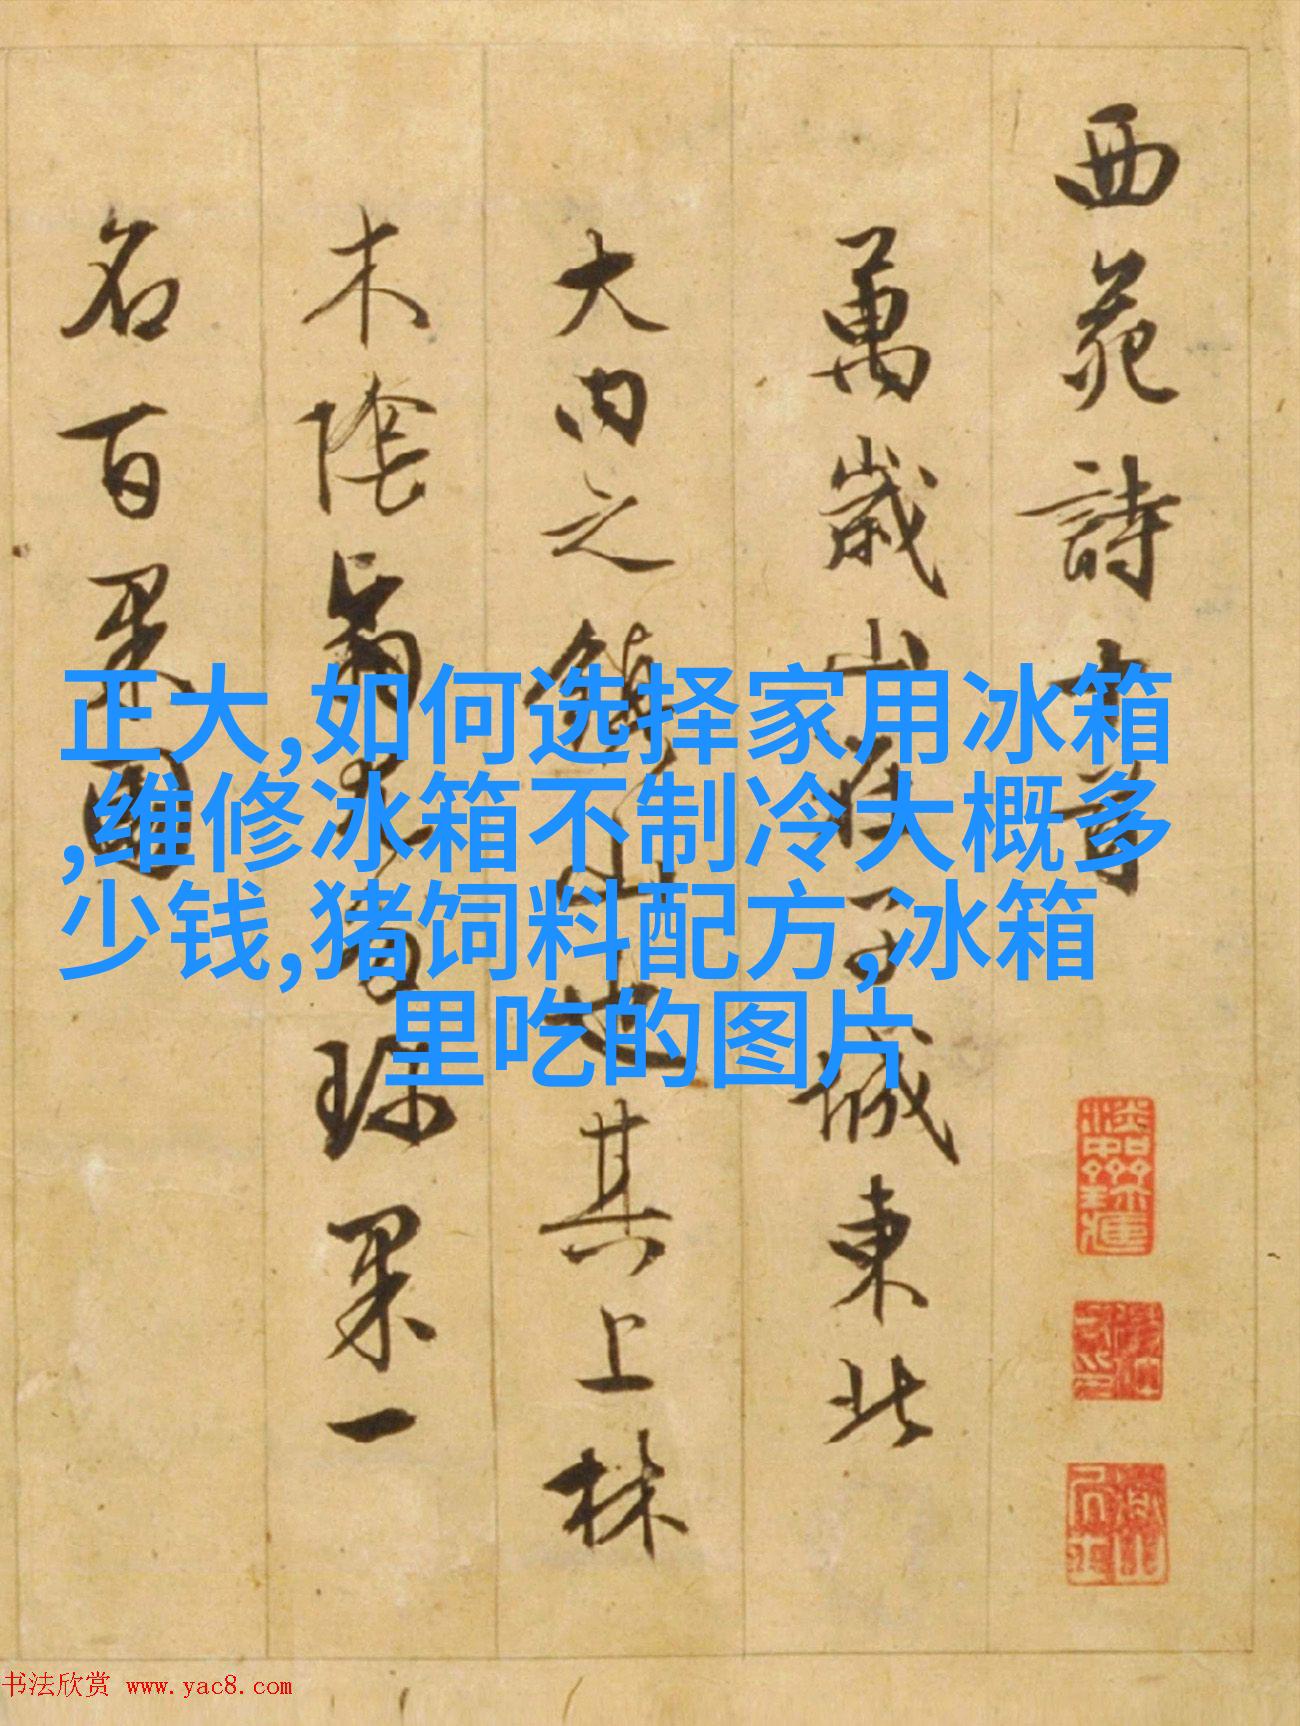 西苑詩十首
萬歲山在子城東北
大内之鎮山也其上林
木陰翳尤多珍果一
名百果園
正大,如何选择家用冰箱
,维修冰箱不制冷大概多
少钱,猪饲料配方,冰箱
里吃的图片
书法欣赏 www.yac8.com